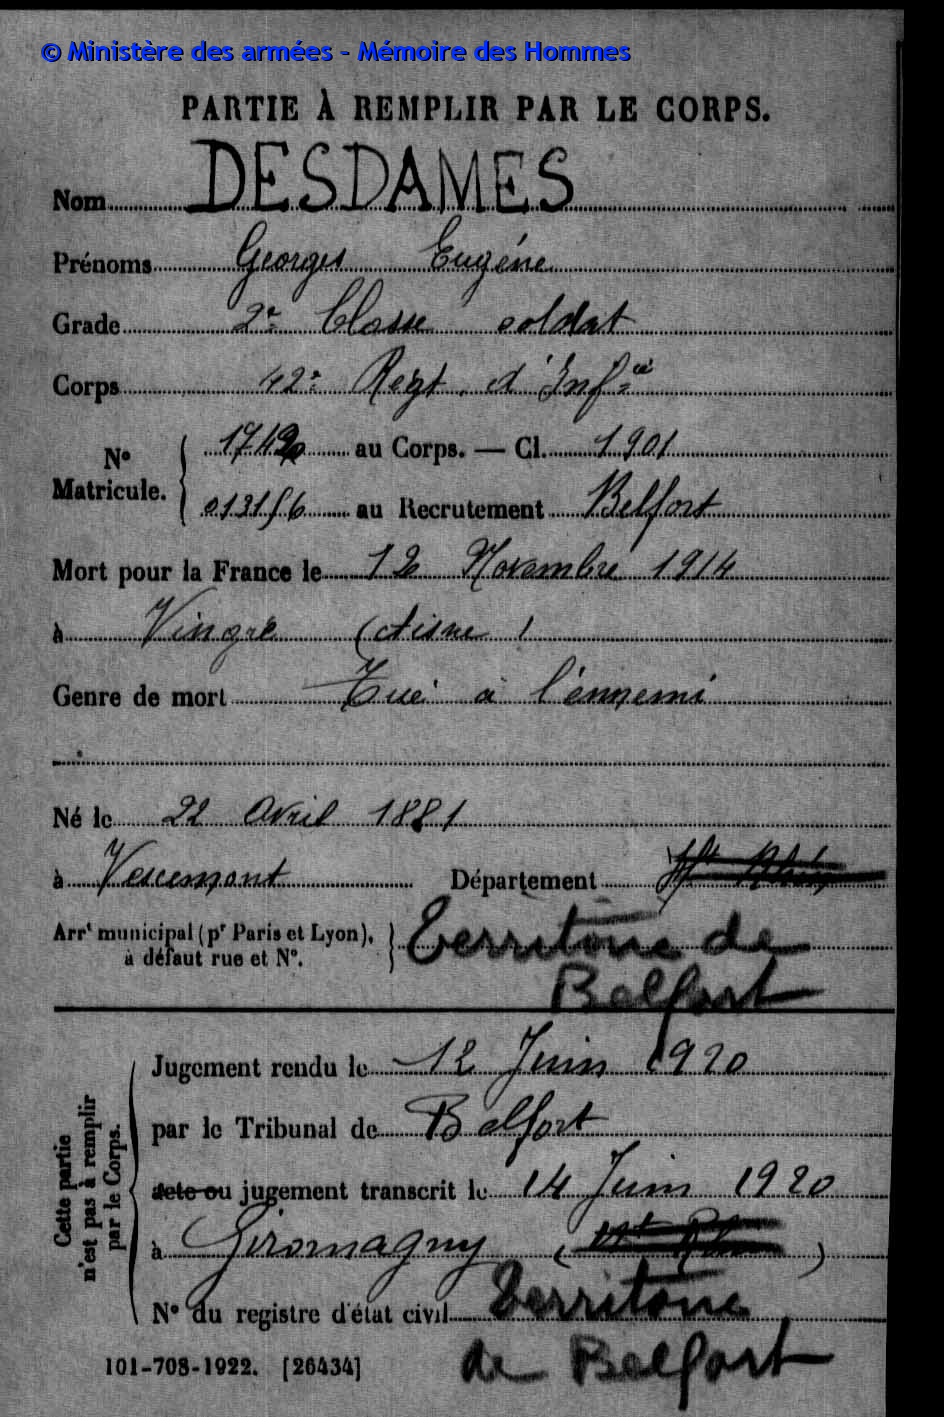 © Ministère des armées - Mémoire des Hommes
PARTIE À REMPLIR PAR LE CORPS.
Nom DESDAMES
Prénoms Georges Eugéne
Grade 2e Classe soldat
Corps 42e Regt. d'Infie
N° Matricule. au Corps. — Cl. 1901
au Recrutement Belfort
Mort pour la France le 12 Novembre 1914
à Vingré (Aisne)
Genre de mort Tué à l'ennemi
Né le 22 Avril 1881
à Vescemont Département Ht Rhin
Arrt municipal (pr Paris et Lyon), à défaut rue et N°. Territoire de
Belfort
Cette partie n'est pas à remplir par le Corps.
Jugement rendu le 12 Juin 1920
par le Tribunal de Belfort
acte ou jugement transcrit le 14 Juin 1920
à Giromagny (Ht Rhin)
N° du registre d'état civil Territoire
de Belfort
101-708-1922. [26434]